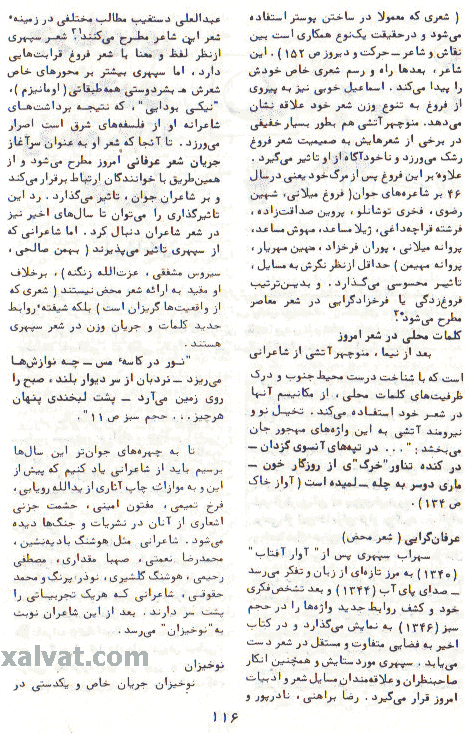 ( شعری که معمولا در ساختن پوستر استفاده
میشود و درحقیقت یک‌نوع همکاری است بین
نقاش و شاعر ــ حرکت و دیروز ص ۱۵۲ ) . این
شاعر ، بعدها راه و رسم شعری خاص خودش
را پیدا می‌کند . اسماعیل خوبی نیز به پیروی
از فروغ به تنوع وزن شعر خود علاقه نشان
می‌دهد. منوچهرآتشی هم بطور بسیار خفیفی
در برخی از شعرهایش به صمیمیت شعر فروغ
رشک می‌ورزد و ناخودآگاه از او تاثیر می‌گیرد .
علاوه بر این فروغ پس از مرگ خود یعنی در سال
۴۶ بر شاعره‌های جوان( فروغ میلانی، شهین
رضوی ، فخری توشانلو ، پروین صداقت‌زاده ،
فرشته قراچه‌داغی، ژیلا مساعد، مهوش مساعد،
پروانه میلانی ، پوران فرخزاد ، مهین مهریار ،
پروانه مهیمن ) حداقل ازنظر نگرش به مسایل ،
تاثیر محسوسی می‌گذارد . و بدین‌ترتیب
فروغ‌زدگی یا فرخزادگرایی در شعر معاصر
مطرح می‌شود؟
کلمات محلی در شعر امروز
بعد از نیما ، منوچهر آتشی از شاعرانی
است که با شناخت درست محیط جنوب و درک
ظرفیت‌های کلمات محلی ، از مکانیسم آنها
در شعر خود استفاده می‌کند . تخیل نو و
نیرومند آتشی به این واژه‌های مهجور جان
می‌بخشد : " ... در تپه‌های آنسوی گزدان ــ
در کنده تناور "خرگ"ی از روزگار خون ــ
ماری دوسر به چله ــ لمیده است ( آواز خاک
ص ۱۳۴ ) .
عرفان‌گرایی ( شعر محض)
سهراب سپهری پس از " آوار آفتاب "
(۱۳۴۰ ) به مرز تازه‌ای از زبان و تفکر می‌رسد
ــ صدای پای آب ( ۱۳۴۴ ) و بعد تشخص فکری
خود و کشف روابط جدید واژه‌ها را در حجم
سبز (۱۳۴۶) به نمایش می‌گذارد و در کتاب
اخیر به فضایی متفاوت و مستقل در شعر دست
می‌یابد . سپهری مورد ستایش و همچنین انکار
صاحبنظران و علاقه‌مندان مسایل شعر و ادبیات
امروز قرار می‌گیرد . رضا براهنی ، نادرپور و
عبدالعلی دستغیب مطالب مختلفی در زمینهء
شعر این شاعر مطرح می‌کنند!؟ شعر سپهری
ازنظر لفظ و معنا با شعر فروغ قرابت‌هایی
دارد ، اما سپهری بیشتر بر محورهای خاص
شعرش ــ بشردوستی همه‌طبقاتی ( اومانیزم ) ،
"نیکی بودایی" ، که نتیجه برداشت‌های
شاعرانه او از فلسفه‌های شرق است اصرار
می‌ورزد . تا آنجا که شعر او به عنوان سرآغاز
جریان شعر عرفانی امروز مطرح می‌شود و از
همین‌طریق با خوانندگان ارتباط برقرار می‌کند
و بر شاعران جوان ، تاثیر می‌گذارد . رد این
تاثیرگذاری را می‌توان تا سال‌های اخیر نیز
در شعر شاعران دنبال کرد . اما شاعرانی که
از سپهری تاثیر می‌پذیرند ( بهمن صالحی ،
سیروس مشفقی ، عزت‌الله زنگنه ) ، برخلاف
او مقید به ارائه شعر محض نیستند ( شعری که
از واقعیت‌ها گریزان است ) بلکه شیفتهء روابط
جدید کلمات و جریان وزن در شعر سپهری
هستند .
"نـور در کاسهء مس ــ چه نوازش‌ها
می‌ریزد ــ نردبان از سر دیوار بلند ، صبح را
روی زمین می‌آرد ــ پشت لبخندی پنهان
هرچیز ... حجم سبز ص ۱۱" .
تا به چهره‌های جوان‌تر این سال‌ها
برسیم باید از شاعرانی یاد کنیم که پیش از
این و به موازات چاپ آثاری از یدالله رویایی،
فرخ تمیمی ، مفتون امینی ، حشمت جزنی
اشعاری از آنان در نشریات و جنگ‌ها دیده
می‌شود . شاعرانی مثل هوشنگ بادیه‌نشین ،
محمدرضا نعمتی ، صهبا مقداری ، مصطفی
رحیمی ، هوشنگ گلشیری ، نوذر پرنگ و محمد
حقوقی ، شاعرانی که هریک تجربیاتی را
پشت سر دارند . بعد از این شاعران نوبت
به "نوخیزان" می‌رسد .
نوخیزان
نوخیزان جریان خاص و یکدستی در
xalvat.com
۱۱۶